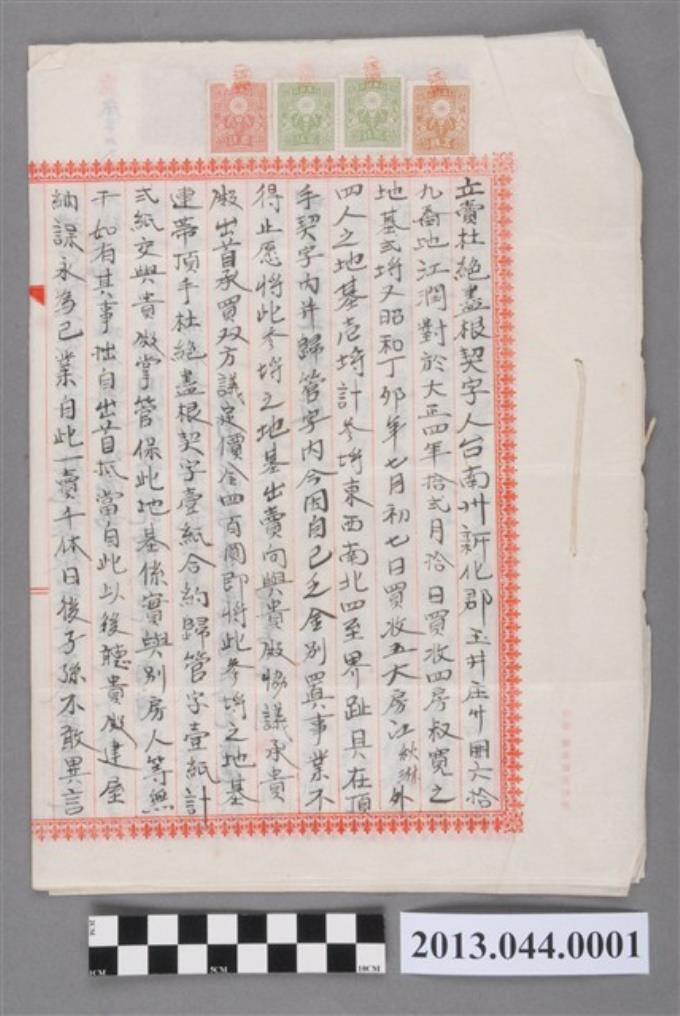 立賣杜絕盡根契字人台南州新化郡玉井庄竹圍六拾
九番地江潤對於大正四年拾弍月拾日買收四房叔寬之
地基弍埒又昭和丁卯年七月初七日買收五大房江秋琳外
四人之地基壱埒計參埒東西南北四至界趾具在頂
手契字內並歸管字內今因自己乏金別置事業不
得止愿將此參埒之地基出賣向與貴殿協議承貴
殿出首承買双方議定價金四百圓即將此參埒之地基
連帶頂手杜絕盡根契字壹紙合約歸管字壹紙計
弍紙交與貴殿掌管保此地基係實與別房人等無
干如有其事惟自出首抵當自此以後聽貴殿建屋
納課永為己業自此一賣千休日後子孫不敢異言
1CM
5CM
10CM
2013.044.0001